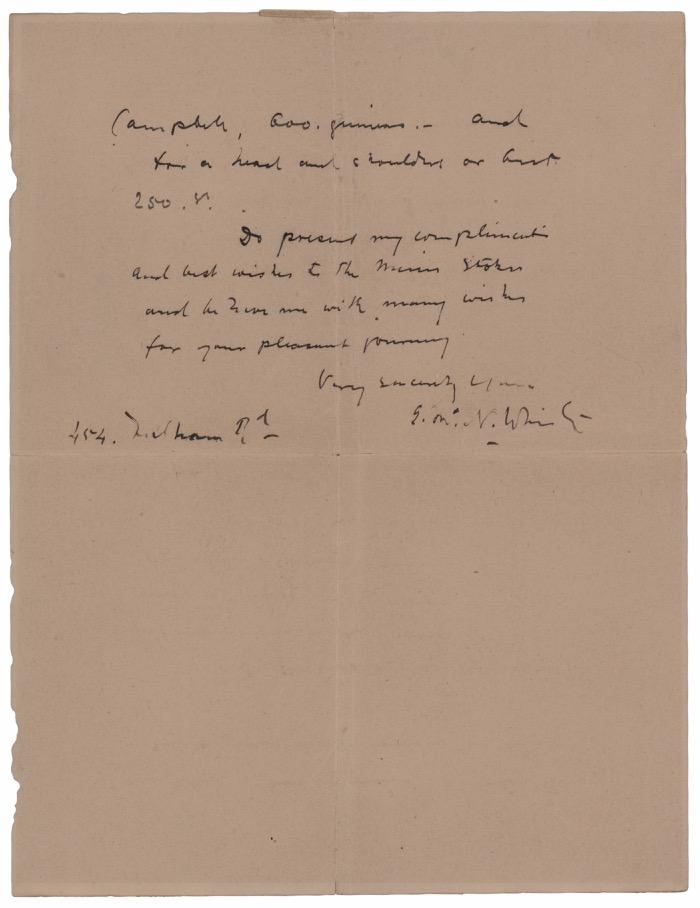 Campbell, 600. guineas. — and
for a head and shoulders or bust.
250. 
Do present my compliments
and best wishes to the Misses Stokes
and believe me with many wishes
for your pleasant journey
Very sincerely Yours
J. McN. Whistler
454. Fulham Rd